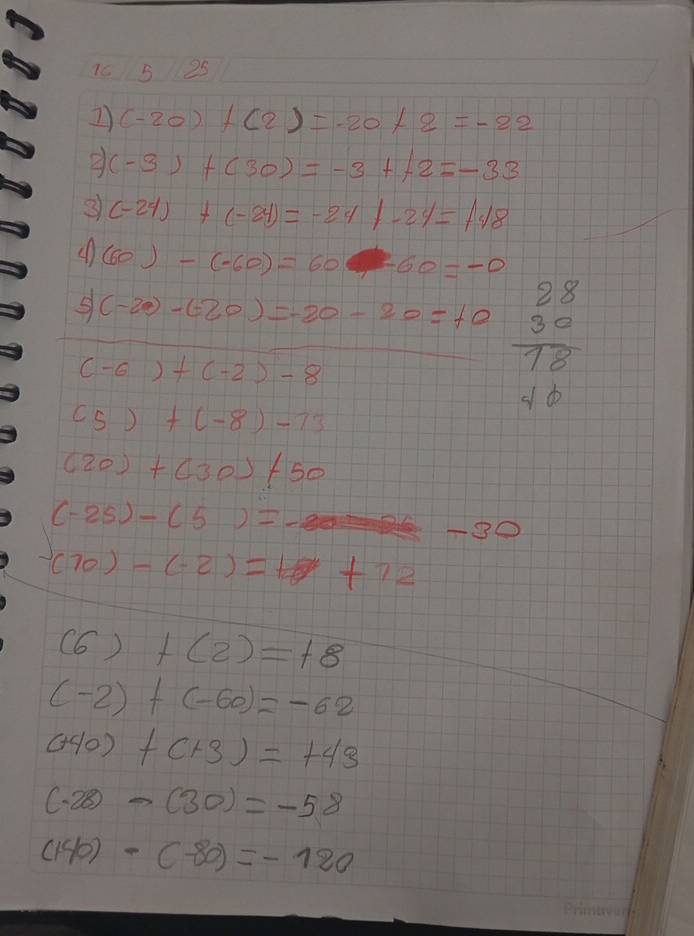 16 5 25
1) (-20) + (2) = -20 + 2 = -22
2) (-3) + (30) = -3 + +2 = -33
3) (-24) + (-24) = -24 + -24 = +48
4) (60) - (-60) = 60 -60 = -0
5) (-20) - (-20) = -20 - 20 = +0
28
30
18
(-6) + (-2) - 8
(5) + (-8) - 13
(20) + (30) + 50
(-25) - (5) = - -30
(10) - (-2) = + 12
(6) + (2) = +8
(-2) + (-60) = -62
(+40) + (+3) = +43
(-28) - (30) = -58
(+40) - (-80) = - 120
Primavera